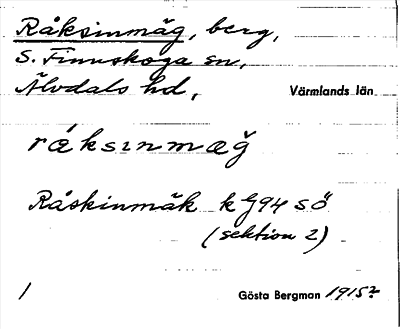 Råksinmäg, berg,
S. Finnskoga sn,
Älvdals hd, Värmlands län
råksınmæğ
Råskinmäk kg94 sö
(sektion 2)
1 Gösta Bergman 1915?